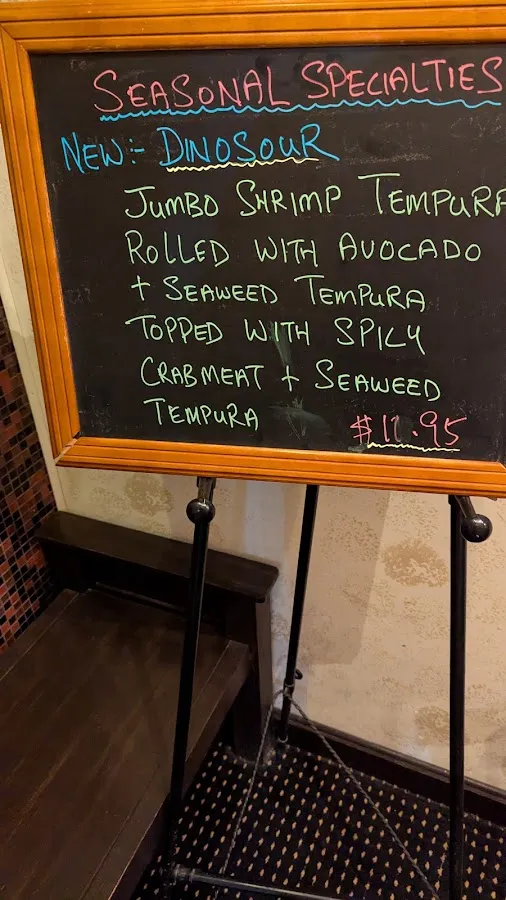 SEASONAL SPECIALTIES
NEW:- DINOSOUR
JUMBO SHRIMP TEMPURA
ROLLED WITH AVOCADO
+ SEAWEED TEMPURA
TOPPED WITH SPICY
CRABMEAT + SEAWEED
TEMPURA $11.95